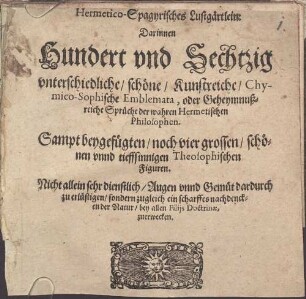 Hermetico-Spagyrisches Lustgärtlein:
Darinnen
Hundert vnd Sechtzig
vnterschiedliche/ schöne/ Kunstreiche/ Chy-
mico-Sophische Emblemata, oder Geheymnuß-
reiche Sprüche der wahren Hermetischen
Philosophen.
Sampt beygefügten/ noch vier grossen/ schö-
nen vnnd tieffsinnigen Theosophischen
Figuren.
Nicht allein sehr dienstlich/ Augen vnnd Gemüt dardurch
zu erlüstigen/ sondern zugleich ein scharffes nachdenck-
en der Natur/ bey allen Filijs Doctrinæ,
zuerwecken.